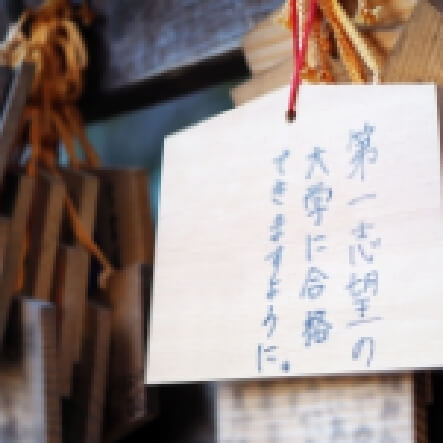 第一志望の
大学に合格
できますように。